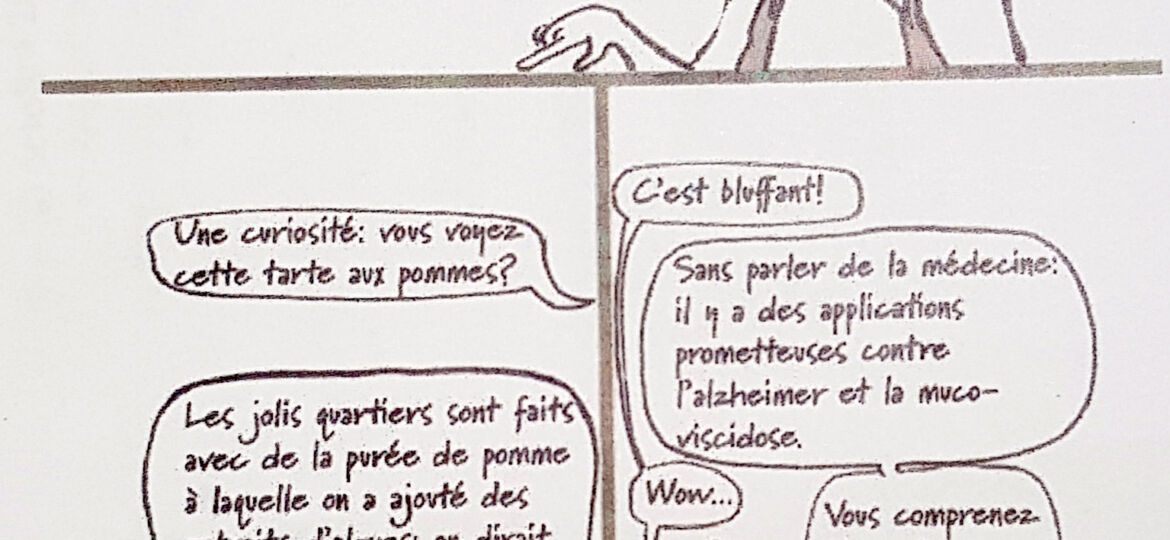 Une curiosité: vous voyez
cette tarte aux pommes?
Les jolis quartiers sont faits
avec de la purée de pomme
à laquelle on a ajouté des
on dirait
C'est bluffant!
Sans parler de la médecine:
il y a des applications
prometteuses contre
l'alzheimer et la muco-
viscidose.
Wow...
Vous comprenez